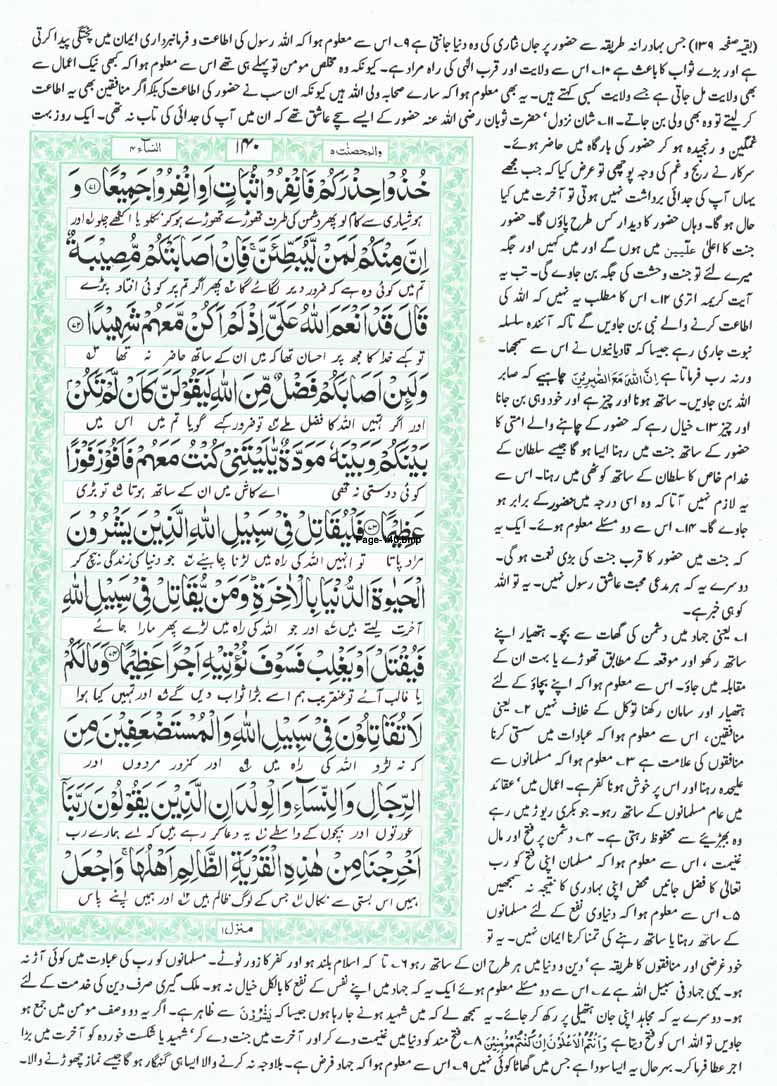 (بقیہ صفحہ ۱۳۹) جس بہادرانہ طریقہ سے حضور پر جاں نثاری کی وہ دنیا جانتی ہے ۹۔ اس سے معلوم ہوا کہ اللہ رسول کی اطاعت و فرمانبرداری ایمان میں پختگی پیدا کرتی
ہے اور بڑے ثواب کا باعث ہے ۱۰۔ اس سے ولایت اور قرب الٰہی کی راہ مراد ہے۔ کیونکہ وہ مخلص مومن تو پہلے ہی تھے اس سے معلوم ہوا کہ کبھی نیک اعمال سے
بھی ولایت مل جاتی ہے جسے ولایت کسبی کہتے ہیں۔ یہ بھی معلوم ہوا کہ سارے صحابہ ولی اللہ ہیں کیونکہ ان سب نے حضور کی اطاعت کی بلکہ اگر منافقین بھی یہ اطاعت
کر لیتے تو وہ بھی ولی بن جاتے۔ ۱۱۔ شان نزول' حضرت ثوبان رضی اللہ عنہ حضور کے ایسے سچے عاشق تھے کہ ان میں آپ کی جدائی کی تاب نہ تھی۔ ایک روز بہت
غمگین و رنجیدہ ہو کر حضور کی بارگاہ میں حاضر ہوئے۔
سرکار نے رنج و غم کی وجہ پوچھی تو عرض کیا کہ جب مجھے
یہاں آپ کی جدائی برداشت نہیں ہوتی تو آخرت میں کیا
حال ہو گا۔ وہاں حضور کا دیدار کس طرح پاؤں گا۔ حضور
جنت کا اعلیٰ علیین میں ہوں گے اور میں کہیں اور جگہ
میرے لئے تو جنت وحشت کی جگہ بن جاوے گی۔ تب یہ
آیت کریمہ اتری ۱۲۔ اس کا مطلب یہ نہیں کہ اللہ کی
اطاعت کرنے والے نبی بن جاویں گے تاکہ آئندہ سلسلہ
نبوت جاری رہے جیسا کہ قادیانیوں نے اس سے سمجھا۔
ورنہ رب فرماتا ہے اِنَّ اللّٰہَ مَعَ الصّٰبِرِیْنَ چاہیے کہ صابر
اللہ بن جاویں۔ ساتھ ہونا اور چیز ہے اور خود وہی بن جانا
اور چیز ۱۳۔ خیال رہے کہ حضور کے چاہنے والے امتی کا
حضور کے ساتھ جنت میں رہنا ایسا ہو گا جیسے سلطان کے
خدام خاص کا سلطان کے ساتھ کوٹھی میں رہنا۔ اس سے
یہ لازم نہیں آتا کہ وہ اسی درجہ میں حضور کے برابر ہو
جاوے گا۔ ۱۴۔ اس سے دو مسئلے معلوم ہوئے۔ ایک یہ
کہ جنت میں حضور کا قرب جنت کی بڑی نعمت ہو گی۔
دوسرے یہ کہ ہر مدعی محبت عاشق رسول نہیں۔ یہ تو اللہ
کو ہی خبر ہے۔
۱۔ یعنی جہاد میں دشمن کی گھات سے بچو۔ ہتھیار اپنے
ساتھ رکھو اور موقعہ کے مطابق تھوڑے یا بہت ان کے
مقابلہ میں جاؤ۔ اس سے معلوم ہوا کہ اپنے بچاؤ کے لئے
ہتھیار اور سامان رکھنا توکل کے خلاف نہیں ۲۔ یعنی
منافقین، اس سے معلوم ہوا کہ عبادات میں سستی کرنا
منافقوں کی علامت ہے ۳۔ معلوم ہوا کہ مسلمانوں سے
علیحدہ رہنا اور اس پر خوش ہونا کفر ہے۔ اعمال میں' عقائد
میں عام مسلمانوں کے ساتھ رہو۔ جو بکری ریوڑ میں رہے
وہ بھیڑیئے سے محفوظ رہتی ہے۔ ۴۔ دشمن پر فتح اور مال
غنیمت، اس سے معلوم ہوا کہ مسلمان اپنی فتح کو رب
تعالیٰ کا فضل جانیں محض اپنی بہادری کا نتیجہ نہ سمجھیں
۵۔ اس سے معلوم ہوا کہ دنیاوی نفع کے لئے مسلمانوں
کے ساتھ رہنا یا ساتھ رہنے کی تمنا کرنا ایمان نہیں۔ یہ تو
والمحصنٰت ۵ ۱۴۰ النسآء ۴
خُذُوْا حِذْرَكُمْ فَانْفِرُوْا ثُبَاتٍ اَوِ انْفِرُوْا جَمِيْعًا ۷۱ وَ
ہوشیاری سے کام لو پھر دشمن کی طرف تھوڑے تھوڑے ہو کر نکلو یا اکٹھے چلو اور
اِنَّ مِنْكُمْ لَمَنْ لَّيُبَطِّئَنَّ ۚ فَاِنْ اَصَابَتْكُمْ مُّصِيْبَةٌ
تم میں کوئی وہ ہے کہ ضرور دیر لگائے گا پھر اگر تم پر کوئی افتاد پڑے
قَالَ قَدْ اَنْعَمَ اللّٰهُ عَلَیَّ اِذْ لَمْ اَكُنْ مَّعَهُمْ شَهِيْدًا ۷۲
تو کہے خدا کا مجھ پر احسان تھا کہ میں ان کے ساتھ حاضر نہ تھا
وَلَئِنْ اَصَابَكُمْ فَضْلٌ مِّنَ اللّٰهِ لَيَقُوْلَنَّ كَاَنْ لَّمْ تَكُنْ
اور اگر تمہیں اللہ کا فضل ملے تو ضرور کہے گویا تم میں اس میں
بَيْنَكُمْ وَبَيْنَهٗ مَوَدَّةٌ يّٰلَيْتَنِیْ كُنْتُ مَعَهُمْ فَاَفُوْزَ فَوْزًا
کوئی دوستی نہ تھی اے کاش میں ان کے ساتھ ہوتا تو بڑی
عَظِيْمًا ۷۳ فَلْيُقَاتِلْ فِیْ سَبِيْلِ اللّٰهِ الَّذِيْنَ يَشْرُوْنَ
Page-140.bmp
مراد پاتا تو انہیں اللہ کی راہ میں لڑنا چاہیئے جو دنیا کی زندگی بیچ کر
الْحَيٰوةَ الدُّنْيَا بِالْاٰخِرَةِ ؕ وَمَنْ يُّقَاتِلْ فِیْ سَبِيْلِ اللّٰهِ
آخرت لیتے ہیں اور جو اللہ کی راہ میں لڑے پھر مارا جائے
فَيُقْتَلْ اَوْ يَغْلِبْ فَسَوْفَ نُؤْتِيْهِ اَجْرًا عَظِيْمًا ۷۴ وَمَا لَكُمْ
یا غالب آئے تو عنقریب ہم اسے بڑا ثواب دیں گے اور تمہیں کیا ہوا
لَا تُقَاتِلُوْنَ فِیْ سَبِيْلِ اللّٰهِ وَالْمُسْتَضْعَفِيْنَ مِنَ
کہ نہ لڑو اللہ کی راہ میں اور کمزور مردوں اور
الرِّجَالِ وَالنِّسَآءِ وَالْوِلْدَانِ الَّذِيْنَ يَقُوْلُوْنَ رَبَّنَآ
عورتوں اور بچوں کے واسطے یہ دعا کر رہے ہیں کہ اے ہمارے رب
اَخْرِجْنَا مِنْ هٰذِهِ الْقَرْيَةِ الظَّالِمِ اَهْلُهَا ۚ وَاجْعَلْ
ہمیں اس بستی سے نکال جس کے لوگ ظالم ہیں اور ہمیں اپنے پاس
منزل ۱
خود غرضی اور منافقوں کا طریقہ ہے' دین و دنیا میں ہر طرح ان کے ساتھ رہو ۶۔ تا کہ اسلام بلند ہو اور کفر کا زور ٹوٹے۔ مسلمانوں کو رب کی عبادت میں کوئی آڑ نہ
ہو۔ یہی جہاد فی سبیل اللہ ہے ۷۔ اس سے دو مسئلے معلوم ہوئے ایک یہ کہ جہاد میں اپنے نفس کے نفع کا بالکل خیال نہ ہو۔ ملک گیری صرف دین کی خدمت کے لئے
ہو۔ دوسرے یہ کہ مجاہد اپنی جان ہتھیلی پر رکھ کر جائے۔ یہ سمجھ لے کہ میں شہید ہونے جا رہا ہوں جیسا کہ یَشْرُوْنَ سے ظاہر ہے۔ اگر یہ دو وصف مومن میں جمع ہو
جاویں تو اللہ اس کو فتح دیتا ہے وَاَنْتُمُ الْاَعْلَوْنَ اِنْ كُنْتُمْ مُّؤْمِنِیْنَ ۸۔ فتح مند کو دنیا میں غنیمت دے کر اور آخرت میں جنت دے کر' شہید یا شکست خوردہ کو آخرت میں بڑا
اجر عطا فرما کر۔ بہرحال یہ ایسا سودا ہے جس میں گھاٹا کوئی نہیں ۹۔ اس سے معلوم ہوا کہ جہاد فرض ہے۔ بلاوجہ نہ کرنے والا ایسا ہی گنہگار ہو گا جیسے نماز چھوڑنے والا۔